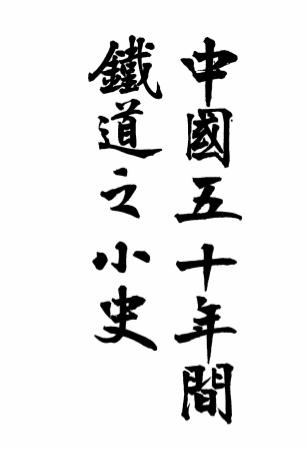 中國五十年間
鐵道之小史